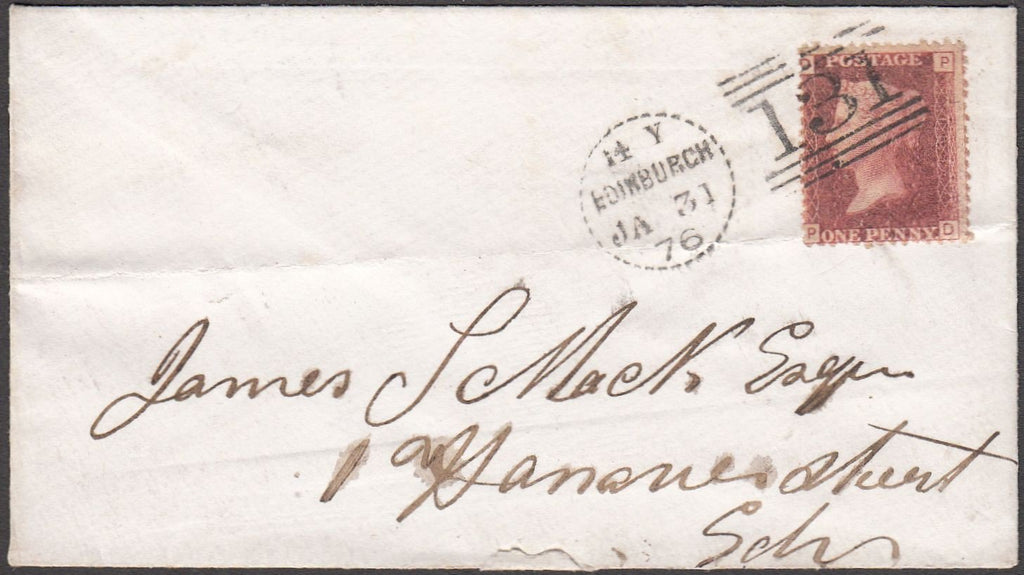 POSTAGE
P
131
P ONE PENNY D
14 Y
EDINBURGH
JA 31
76
James S Mack Esqr
1 Hanover Street
Edr